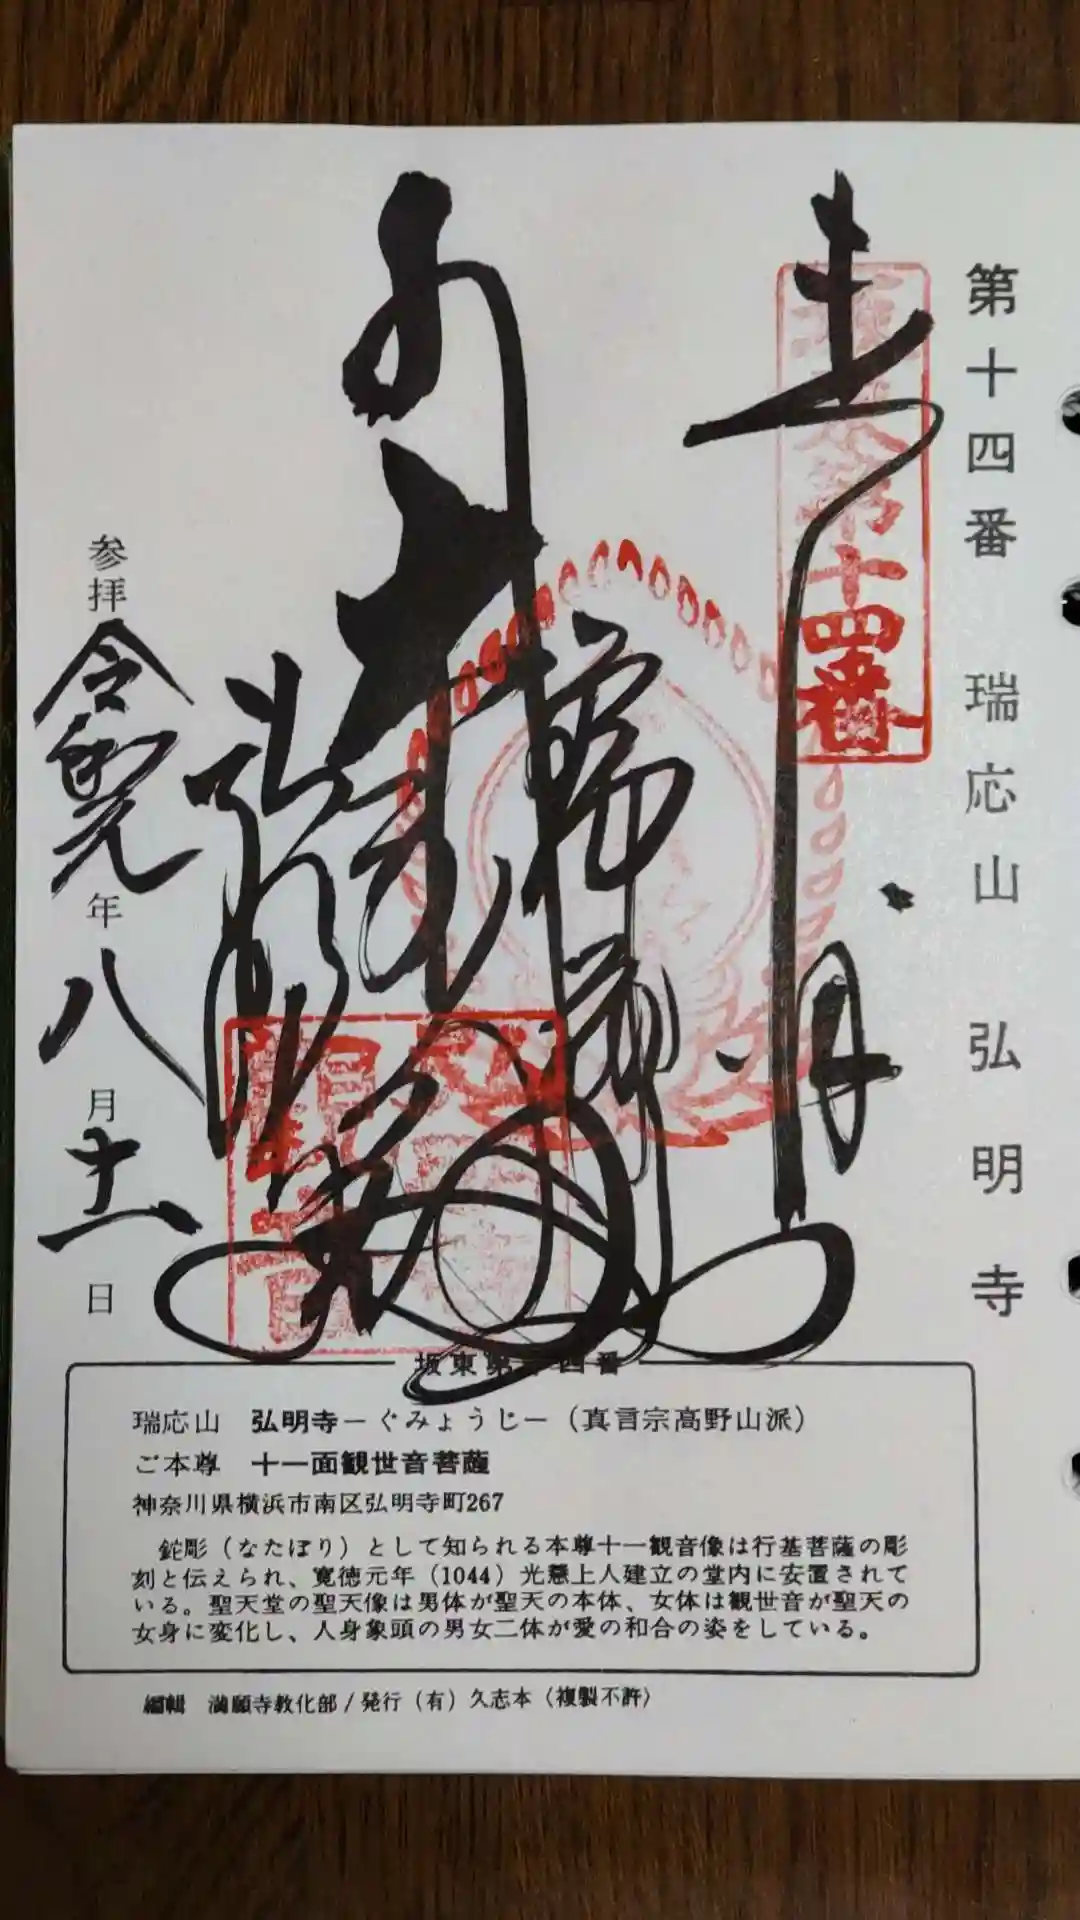 第十四番 瑞応山 弘明寺
坂東第十四番
参拝 令和元年八月十一日
坂東第十四番
瑞応山 弘明寺―ぐみょうじ―（真言宗高野山派）
ご本尊 十一面観世音菩薩
神奈川県横浜市南区弘明寺町267
鉈彫（なたぼり）として知られる本尊十一観音像は行基菩薩の彫
刻と伝えられ、寛徳元年（1044）光慧上人建立の堂内に安置されて
いる。聖天堂の聖天像は男体が聖天の本体、女体は観世音が聖天の
女身に変化し、人身象頭の男女二体が愛の和合の姿をしている。
編輯 満願寺教化部/発行（有）久志本〈複製不許〉